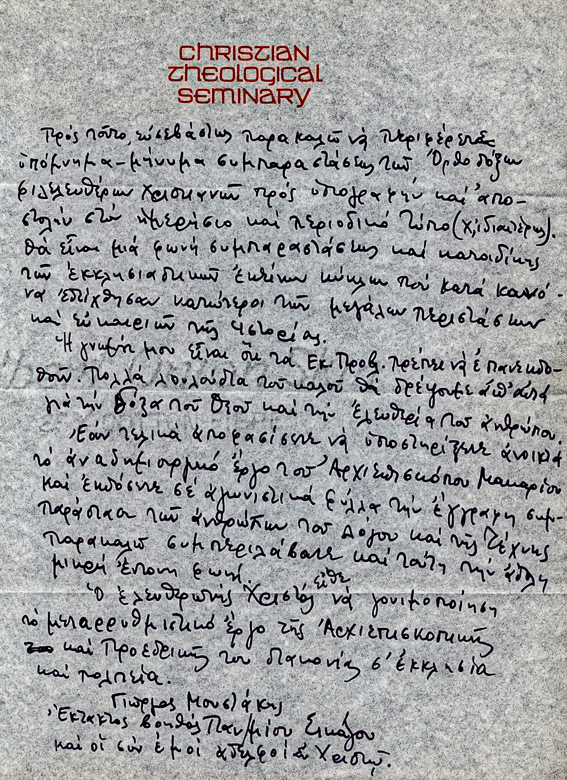 CHRISTIAN
THEOLOGICAL
SEMINARY
Πρός τοῦτο, εὐσεβάστως παρακαλῶ νά περιφέρετε
ὑπόμνημα-μήνυμα συμπαραστάσεως τῶν Ὀρθοδόξων
φιλελευθέρων χριστιανῶν πρός ὑπογραφήν καί ἀπο-
στολήν στόν ἡμερήσιο καί περιοδικό τύπο (χ' ἰδιαιτέρως).
Θά εἶναι μιά φωνή συμπαραστάσεως καί καταδίκης
τῶν ἐκκλησιαστικῶν ἐκείνων κύκλων πού κατά κανό-
να ἐδείχθησαν κατώτεροι τῶν μεγάλων περιστάσεων
καί εὐκαιριῶν τῆς ἱστορίας.
Ἡ γνώμη μου εἶναι ὅτι τά Ἐκ. Προβ. πρέπει νά ἐπανεκδο-
θοῦν. Πολλά λουλούδια τοῦ καλοῦ θά δρέψουμε ἀπ' αὐτά
γιά τήν δόξα τοῦ Θεοῦ καί τήν ἐλευθερία τοῦ ἀνθρώπου.
Ἐάν τελικά ἀποφασίσετε νά ὑποστηρίξετε ἀνοικτά
τό ἀναδημιουργικό ἔργο τοῦ Ἀρχιεπισκόπου Μακαρίου
καί ἐκδόσετε σέ ἀγωνιστικά φύλλα τήν ἔγγραφη συμ-
παράσταση τῶν ἀνθρώπων τοῦ Λόγου καί τῆς Τέχνης
παρακαλῶ συμπεριλάβατε καί ταύτη τήν
μικρή ἔντονη φωνή.
Ὁ ἐλευθερωτής Χριστός εἴθε νά γονιμοποίηση
τό μεταρρυθμιστικό ἔργο τῆς Ἀρχιεπισκοπικῆς
καί Προεδρικῆς του διακονίας σ' ἐκκλησία
καί πολιτεία.
Γιῶργος Μουστάκης
Ἔκτακτος βοηθός Παν/μίου Σικάγου
καί οἱ σύν ἐμοί ἀδελφοί ἐν Χριστῷ.